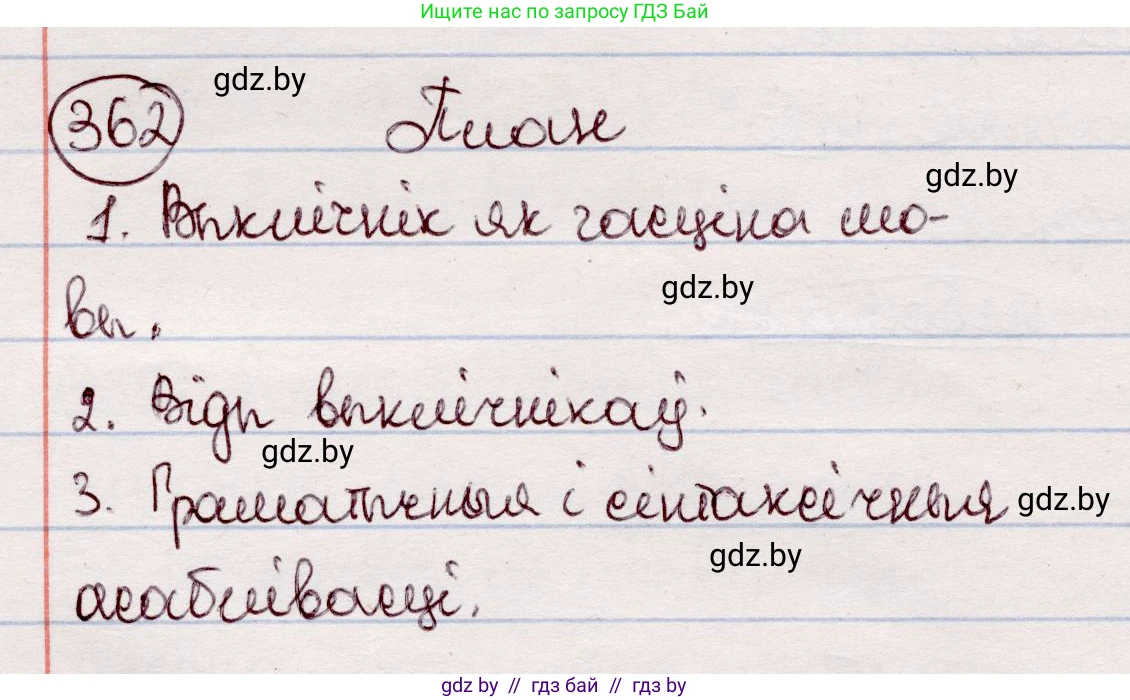 Ищите нас по запросу ГДЗ Бай
gdz.by
362 План
gdz.by
1. Выклічнік як часціна мо-
gdz.by
вы.
2. Віды выклічнікаў.
gdz.by
3. Граматычныя і сінтаксічныя gdz.by
gdz.by
асаблівасці.
gdz by // гдз бай // гдз by